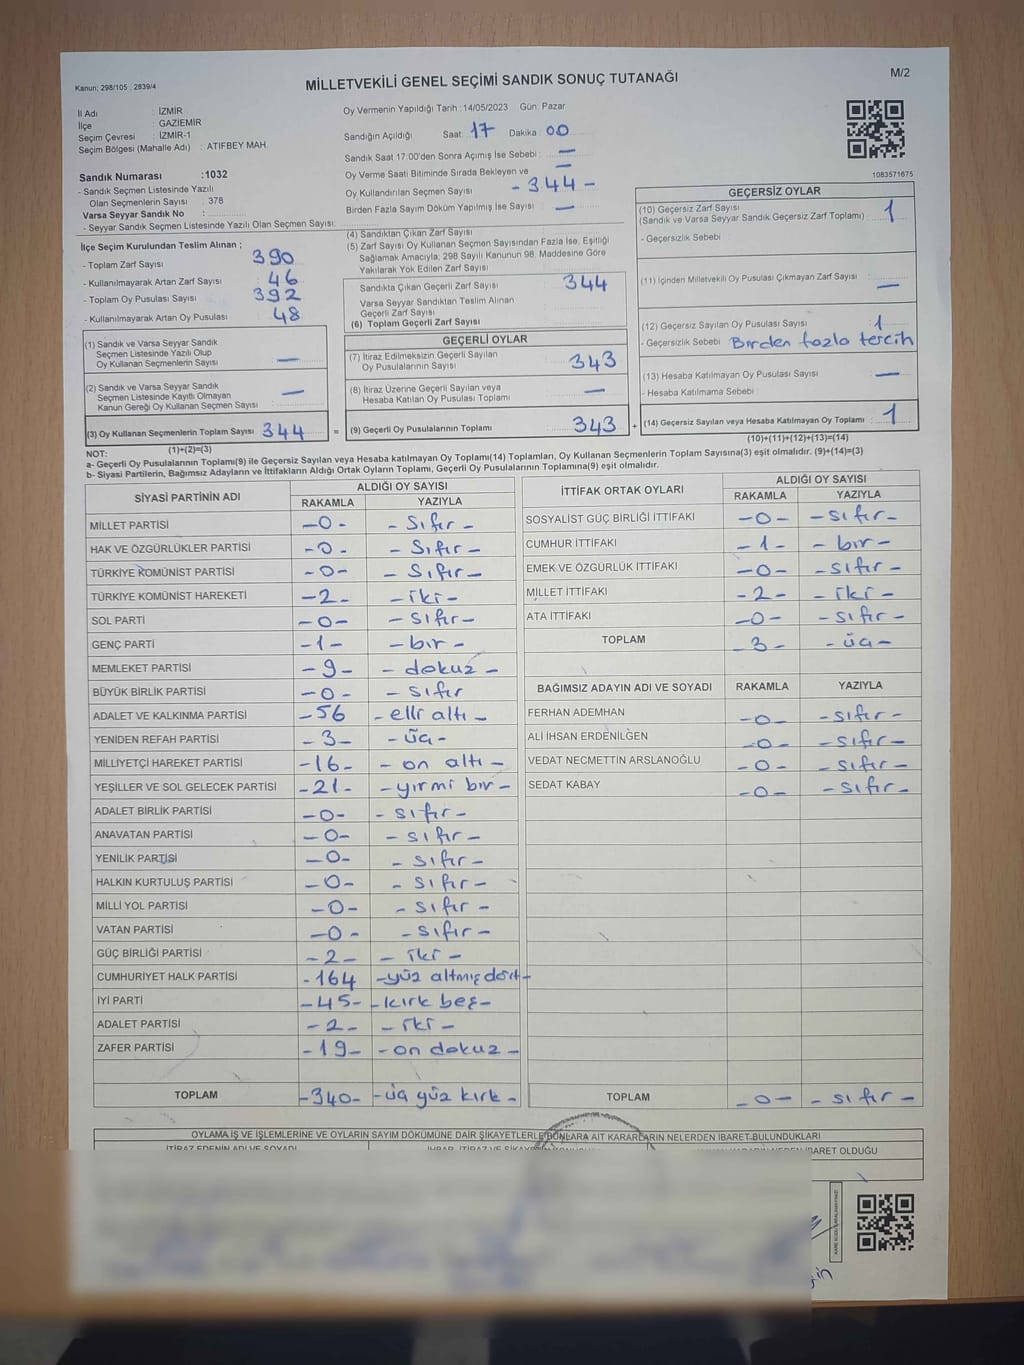 Kanun: 298/105 ; 2839/4
MİLLETVEKİLİ GENEL SEÇİMİ SANDIK SONUÇ TUTANAĞI
M/2
İl Adı : İZMİR
İlçe : GAZİEMİR
Seçim Çevresi : İZMİR-1
Seçim Bölgesi (Mahalle Adı) : ATIFBEY MAH.
Sandık Numarası :1032
- Sandık Seçmen Listesinde Yazılı
Olan Seçmenlerin Sayısı : 378
Varsa Seyyar Sandık No :
- Seyyar Sandık Seçmen Listesinde Yazılı Olan Seçmen Sayısı:
Oy Vermenin Yapıldığı Tarih :14/05/2023 Gün: Pazar
Sandığın Açıldığı Saat: 17 Dakika : 00
Sandık Saat 17:00'den Sonra Açımış İse Sebebi : —
Oy Verme Saati Bitiminde Sırada Bekleyen ve —
Oy Kullandırılan Seçmen Sayısı - 344 -
Birden Fazla Sayım Döküm Yapılmış İse Sayısı : —
1083571675
İlçe Seçim Kurulundan Teslim Alınan ;
- Toplam Zarf Sayısı 390
- Kullanılmayarak Artan Zarf Sayısı : 46
- Toplam Oy Pusulası Sayısı : 392
- Kullanılmayarak Artan Oy Pusulası : 48
(1) Sandık ve Varsa Seyyar Sandık
Seçmen Listesinde Yazılı Olup
Oy Kullanan Seçmenlerin Sayısı : —
(2) Sandık ve Varsa Seyyar Sandık
Seçmen Listesinde Kayıtlı Olmayan
Kanun Gereği Oy Kullanan Seçmen Sayısı : —
(3) Oy Kullanan Seçmenlerin Toplam Sayısı : 344
(1)+(2)=(3)
(4) Sandıktan Çıkan Zarf Sayısı
(5) Zarf Sayısı Oy Kullanan Seçmen Sayısından Fazla İse, Eşitliği
Sağlamak Amacıyla; 298 Sayılı Kanunun 98. Maddesine Göre
Yakılarak Yok Edilen Zarf Sayısı
Sandıkta Çıkan Geçerli Zarf Sayısı : 344
Varsa Seyyar Sandıktan Teslim Alınan
Geçerli Zarf Sayısı
(6) Toplam Geçerli Zarf Sayısı
GEÇERLİ OYLAR
(7) İtiraz Edilmeksizin Geçerli Sayılan
Oy Pusulalarının Sayısı : 343
(8) İtiraz Üzerine Geçerli Sayılan veya
Hesaba Katılan Oy Pusulası Toplamı : —
= (9) Geçerli Oy Pusulalarının Toplamı : 343
GEÇERSİZ OYLAR
(10) Geçersiz Zarf Sayısı : 1
(Sandık ve Varsa Seyyar Sandık Geçersiz Zarf Toplamı)
- Geçersizlik Sebebi :
(11) İçinden Milletvekili Oy Pusulası Çıkmayan Zarf Sayısı : —
(12) Geçersiz Sayılan Oy Pusulası Sayısı : 1
- Geçersizlik Sebebi : Birden fazla tercih
(13) Hesaba Katılmayan Oy Pusulası Sayısı : —
- Hesaba Katılmama Sebebi :
+ (14) Geçersiz Sayılan veya Hesaba Katılmayan Oy Toplamı : 1
(10)+(11)+(12)+(13)=(14)
NOT:
a- Geçerli Oy Pusulalarının Toplamı(9) ile Geçersiz Sayılan veya Hesaba katılmayan Oy Toplamı(14) Toplamları, Oy Kullanan Seçmenlerin Toplam Sayısına(3) eşit olmalıdır. (9)+(14)=(3)
b- Siyasi Partilerin, Bağımsız Adayların ve İttifakların Aldığı Ortak Oyların Toplamı, Geçerli Oy Pusulalarının Toplamına(9) eşit olmalıdır.
SİYASİ PARTİNİN ADI ALDIĞI OY SAYISI
RAKAMLA YAZIYLA
MİLLET PARTİSİ -0- - sıfır -
HAK VE ÖZGÜRLÜKLER PARTİSİ -0- - sıfır -
TÜRKİYE KOMÜNİST PARTİSİ -0- - sıfır -
TÜRKİYE KOMÜNİST HAREKETİ -2- - iki -
SOL PARTİ -0- - sıfır -
GENÇ PARTİ -1- - bir -
MEMLEKET PARTİSİ -9- - dokuz -
BÜYÜK BİRLİK PARTİSİ -0- - sıfır
ADALET VE KALKINMA PARTİSİ -56 - elli altı -
YENİDEN REFAH PARTİSİ -3- - üç -
MİLLİYETÇİ HAREKET PARTİSİ -16- - on altı -
YEŞİLLER VE SOL GELECEK PARTİSİ -21- - yirmi bir -
ADALET BİRLİK PARTİSİ -0- - sıfır -
ANAVATAN PARTİSİ -0- - sıfır -
YENİLİK PARTİSİ -0- - sıfır -
HALKIN KURTULUŞ PARTİSİ -0- - sıfır -
MİLLİ YOL PARTİSİ -0- - sıfır -
VATAN PARTİSİ -0- - sıfır -
GÜÇ BİRLİĞİ PARTİSİ -2- - iki -
CUMHURİYET HALK PARTİSİ -164 -yüz altmış dört-
İYİ PARTİ -45- - kırk beş -
ADALET PARTİSİ -2- - iki -
ZAFER PARTİSİ -19- - on dokuz -
TOPLAM -340- - üç yüz kırk -
İTTİFAK ORTAK OYLARI ALDIĞI OY SAYISI
RAKAMLA YAZIYLA
SOSYALİST GÜÇ BİRLİĞİ İTTİFAKI -0- - sıfır -
CUMHUR İTTİFAKI -1- - bir -
EMEK VE ÖZGÜRLÜK İTTİFAKI -0- - sıfır -
MİLLET İTTİFAKI -2- - iki -
ATA İTTİFAKI -0- - sıfır -
TOPLAM -3- - üç -
BAĞIMSIZ ADAYIN ADI VE SOYADI RAKAMLA YAZIYLA
FERHAN ADEMHAN -0- - sıfır -
ALİ İHSAN ERDENİLGEN -0- - sıfır -
VEDAT NECMETTİN ARSLANOĞLU -0- - sıfır -
SEDAT KABAY -0- - sıfır -
TOPLAM -0- - sıfır -
OYLAMA İŞ VE İŞLEMLERİNE VE OYLARIN SAYIM DÖKÜMÜNE DAİR ŞİKAYETLERLE BUNLARA AİT KARARLARIN NELERDEN İBARET BULUNDUKLARI
İTİRAZ EDENİN ADI VE SOYADI